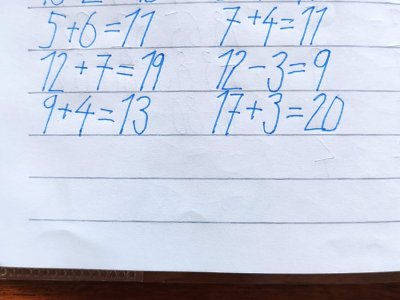 5+6=11 7+4=11
12+7=19 12-3=9
9+4=13 17+3=20